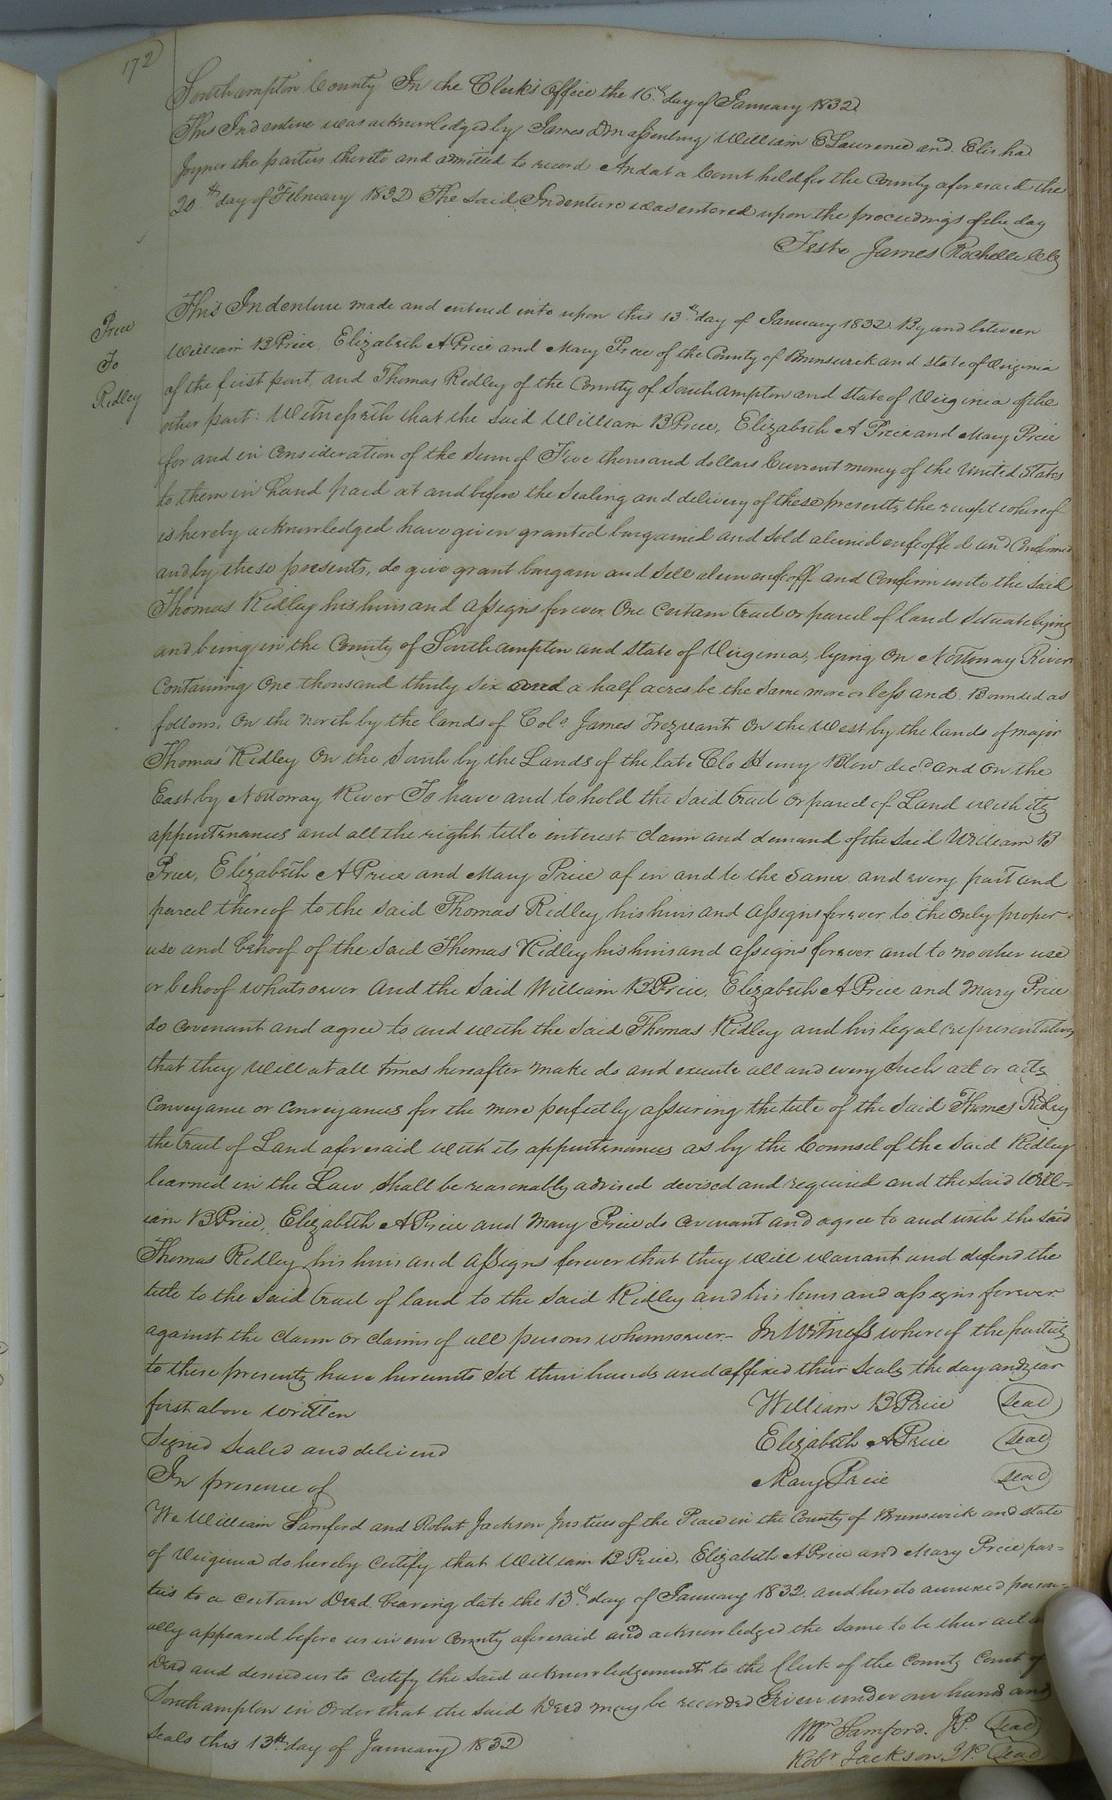 172
Southampton County In the Clerks Office the 16th day of January 1832
This Indenture was acknowledged by James D Massenburg William E Lawrence and Elisha
Joyner the parties thereto and admitted to record And at a Court held for the County aforesaid the
20th day of February 1832 The said Indenture was entered upon the proceedings of the day
Teste James Rochelle Clk
Price
To
Ridley
This Indenture made and entered into upon this 13th day of January 1832 By and between
William B Price, Elizabeth A Price and Mary Price of the County of Brunswick and state of Virginia
of the first part, and Thomas Ridley of the County of Southampton and state of Virginia of the
other part: Witnesseth that the said William B Price, Elizabeth A Price and Mary Price
for and in consideration of the sum of Five thousand dollars Current money of the United States
to them in hand paid at and before the sealing and delivery of these presents the receipt whereof
is hereby acknowledged have given granted bargained and sold aliened enfeoffed and Confirmed
and by these presents, do give grant bargain and sell alien enfeoff and Confirm unto the said
Thomas Ridley his heirs and assigns forever One certain tract or parcel of land situate lying
and being in the County of Southampton and state of Virginia, lying On Nottoway River
Containing One thousand thirty six and a half acres be the same more or less and Bounded as
follows, On the north by the lands of Colo James Trezvant On the West by the lands of major
Thomas Ridley On the South by the Lands of the late Clo Henry Blow decd and On the
East by Nottoway River To have and to hold the said tract or parcel of Land with its
appurtenances and all the right title interest claim and demand of the said William B
Price, Elizabeth A Price and Mary Price of in and to the same and every part and
parcel thereof to the said Thomas Ridley his heirs and assigns forever to the only proper
use and behoof of the said Thomas Ridley his heirs and assigns forever and to no other use
or behoof whatsoever And the said William B Price, Elizabeth A Price and Mary Price
do covenant and agree to and with the said Thomas Ridley and his legal representatives
that they will at all times hereafter make do and execute all and every such act or acts
Conveyance or Conveyances for the more perfectly assuring the title of the said Thomas Ridley
the tract of Land aforesaid with its appurtenances as by the Counsel of the said Ridley
learned in the Law shall be reasonably advised devised and required and the said Will=
iam B Price, Elizabeth A Price and Mary Price do covenant and agree to and with the said
Thomas Ridley his heirs and assigns forever that they will warrant and defend the
title to the said tract of land to the said Ridley and his heirs and assigns forever
against the claim or claims of all persons whomsoever - In Witness whereof the parties
to these presents have hereunto set their hands and affixed their seals the day and year
first above written
William B Price seal
Signed sealed and deliverd
Elizabeth A Price seal
In presence of
Mary Price seal
We William Samford and Robert Jackson Justices of the Peace in the County of Brunswick and state
of Virginia do hereby Certify that William B Price, Elizabeth A Price and Mary Price par=
ties to a certain Deed bearing date the 13th day of January 1832 and hereto annexed person=
ally appeared before us in our County aforesaid and acknowledged the same to be their act
Deed and desired us to Certify the said acknowledgement to the Clerk of the County Court of
Southampton in Order that the said Deed may be recorded Given under our hands and
seals this 13th day of January 1832
Wm Samford. JP. seal
Robt Jackson J P. seal